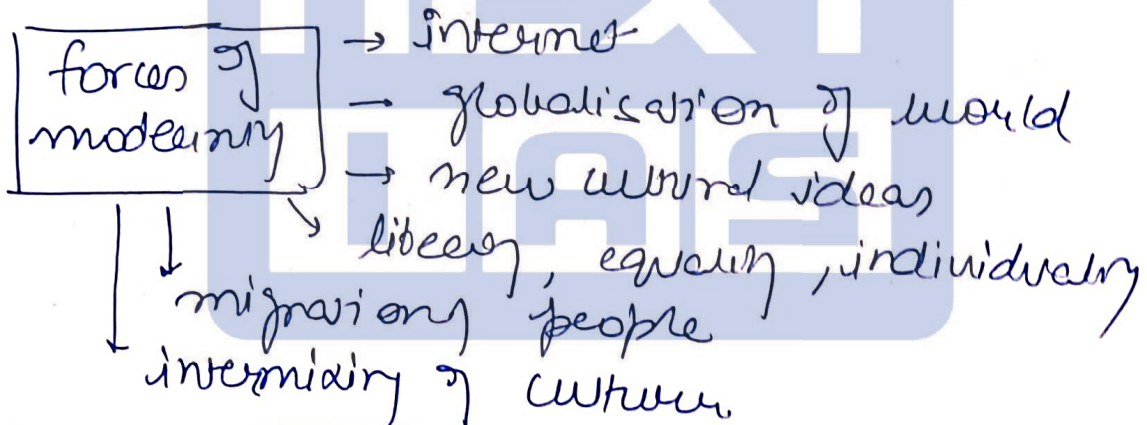 forces of → internet
modernity → globalisation of world
→ new cultural ideas
liberty, equality, individuality
migration of people
intermixing of cultures
NEXT
IAS